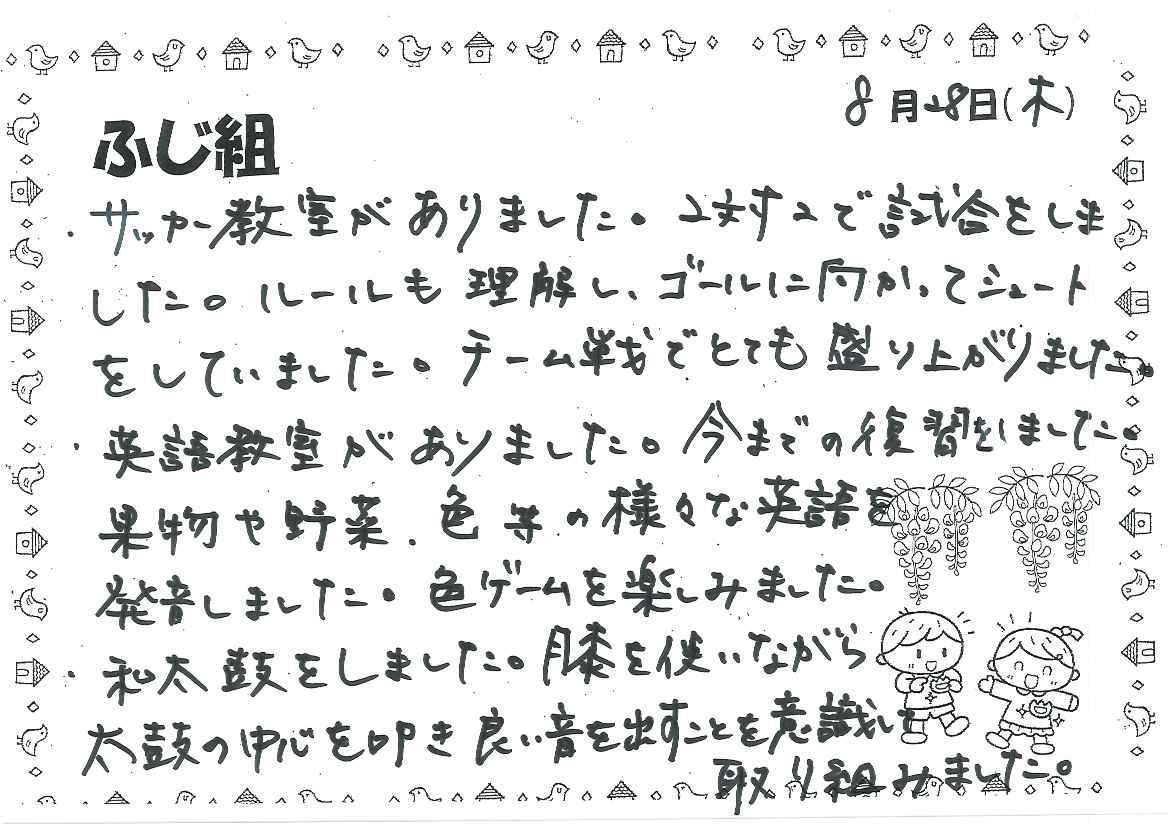 8月28日(木)
ふじ組
・サッカー教室がありました。2対2で試合をしま
した。ルールも理解し、ゴールに向かってシュート
をしていました。チーム戦でとても盛り上がりました。
・英語教室がありました。今までの復習をしました。
果物や野菜、色等の様々な英語を
発音しました。色ゲームを楽しみました。
・和太鼓をしました。膝を使いながら
太鼓の中心を叩き良い音を出すことを意識して
取り組みました。